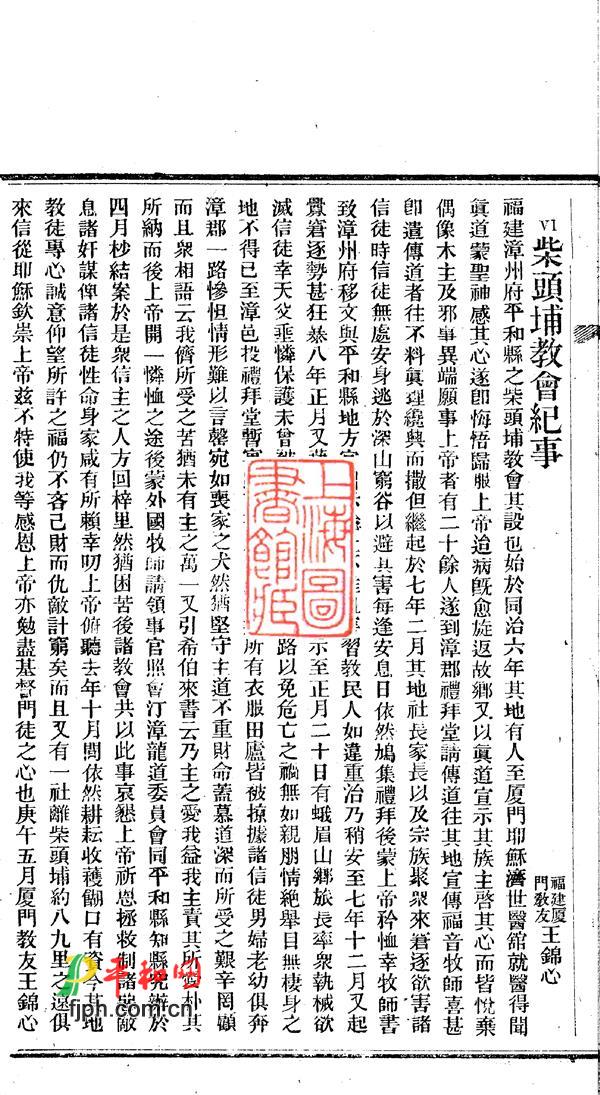 VI 柴頭埔教會紀事
福建厦門教友 王錦心
福建漳州府平和縣之柴頭埔教會其設也始於同治六年其地有人至厦門耶穌濟世醫舘就醫得聞
眞道蒙聖神感其心遂卽悔悟歸服上帝迨病旣愈旋返故鄉又以眞道宣示其族主啓其心而皆悅棄
偶像木主及邪事異端願事上帝者有二十餘人遂到漳郡禮拜堂請傳道往其地宣傳福音牧師喜甚
卽遣傳道者往不料眞理纔興而撒但繼起於七年二月其地社長家長以及宗族聚衆來窘逐欲害諸
信徒時信徒無處安身逃於深山窮谷以避其害每逢安息日依然鳩集禮拜後蒙上帝矜恤幸牧師書
致漳州府移文與平和縣地方官習教民人如違重治乃稍安至七年十二月又起
釁窘逐勢甚狂暴八年正月又示至正月二十日有蛾眉山鄉旅長率衆執械欲
滅信徒幸天父垂憐保護未曾被路以免危亡之禍無如親朋情絕舉目無棲身之
地不得已至漳邑投禮拜堂暫所有衣服田廬皆被掠據諸信徒男婦老幼俱奔
漳郡一路慘怛情形難以言罄宛如喪家之犬然猶堅守主道不重財命蓋慕道深而所受之艱辛罔顧
而且衆相語云我儕所受之苦猶未有主之萬一又引希伯來書云乃主之愛我益我主責其所愛扑其
所納而後上帝開一憐恤之途後蒙外國牧師請領事官照會汀漳龍道委員會同平和縣知縣究辦於
四月杪結案於是衆信主之人方回梓里然猶困苦後諸教會共以此事哀懇上帝祈恩拯救制諸仇敵
息諸奸謀俾諸信徒性命身家咸有所賴幸叨上帝俯聽去年十月間依然耕耘收穫餬口有資今其地
教徒專心誠意仰望所許之福仍不吝己財而仇敵計窮矣而且又有一社離柴頭埔約八九里之遠俱
來信從耶穌欽崇上帝茲不特使我等感恩上帝亦勉盡基督門徒之心也庚午五月厦門教友王錦心
上海圖
書館藏
平和网
fjph.com.cn